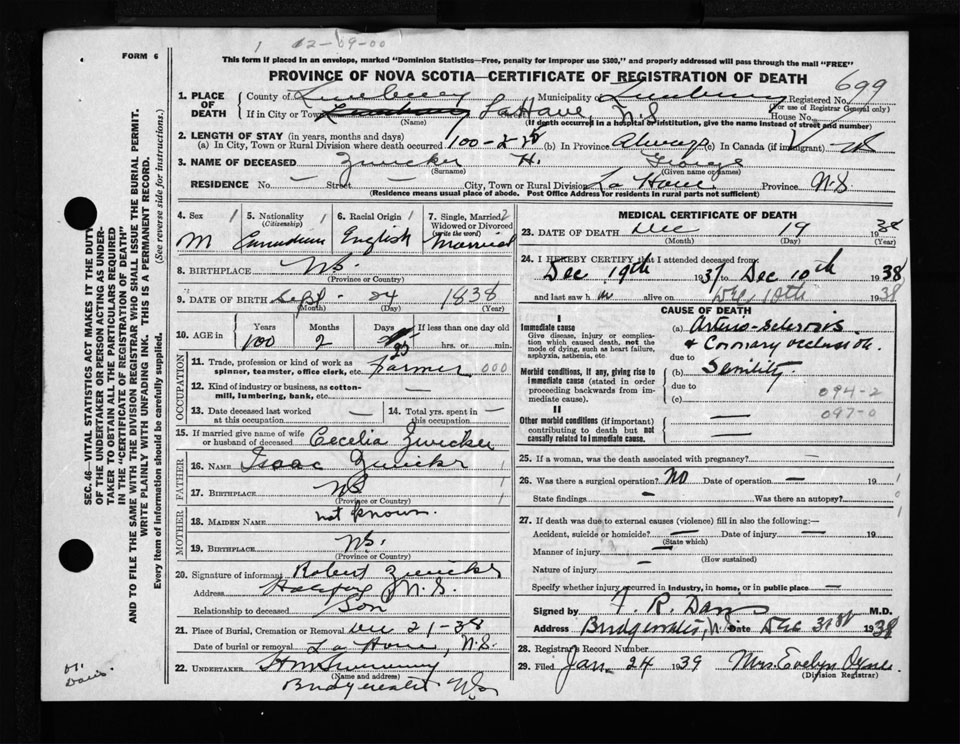 1 12-09-00
FORM 6
This form if placed in an envelope, marked "Dominion Statistics—Free, penalty for improper use $300," and properly addressed will pass through the mail "FREE"
PROVINCE OF NOVA SCOTIA—CERTIFICATE OF REGISTRATION OF DEATH
699
1. PLACE OF DEATH County of Lunenburg Municipality of Lunenburg Registered No.
(For use of Registrar General only)
If in City or Town Lunenburg LaHave, N.S House No.
(Name) (If death occurred in a hospital or institution, give the name instead of street and number)
2. LENGTH OF STAY (in years, months and days)
(a) In City, Town or Rural Division where death occurred 100-2-25 (b) In Province Always (c) In Canada (if immigrant)
3. NAME OF DECEASED Zwicker H. George
(Surname) (Given name or names)
RESIDENCE No. — Street City, Town or Rural Division La Have Province N.S.
(Residence means usual place of abode. Post Office Address for residents in rural parts not sufficient)
SEC. 46—VITAL STATISTICS ACT MAKES IT THE DUTY
OF THE UNDERTAKER OR PERSON ACTING AS UNDER-
TAKER TO OBTAIN ALL THE PARTICULARS REQUIRED
IN THE "CERTIFICATE OF REGISTRATION OF DEATH"
AND TO FILE THE SAME WITH THE DIVISION REGISTRAR WHO SHALL ISSUE THE BURIAL PERMIT.
WRITE PLAINLY WITH UNFADING INK. THIS IS A PERMANENT RECORD.
Every item of information should be carefully supplied. (See reverse side for instructions.)
4. Sex 1 5. Nationality 1 (Citizenship) 6. Racial Origin 1 7. Single, Married, 2 Widowed or Divorced (write the word)
M Canadian English Married
8. BIRTHPLACE N.S.
(Province or Country)
9. DATE OF BIRTH Sept - 24 1838
(Month) (Day) (Year)
10. AGE in Years Months Days If less than one day old
100 2 25 hrs. or min.
OCCUPATION
11. Trade, profession or kind of work as
spinner, teamster, office clerk, etc. Farmer 000
12. Kind of industry or business, as cotton-
mill, lumbering, bank, etc.
13. Date deceased last worked at this occupation — 14. Total yrs. spent in this occupation —
15. If married give name of wife
or husband of deceased Cecelia Zwicker
FATHER
16. NAME Isaac Zwicker 1
17. BIRTHPLACE N.S 1
(Province or Country)
MOTHER
18. MAIDEN NAME not known.
19. BIRTHPLACE N.S.
(Province or Country)
20. Signature of informant Robert Zwicker
Address Halifax N.S.
Relationship to deceased Son
21. Place of Burial, Cremation or Removal Dec 21-38
Date of burial or removal La Have, N.S.
22. UNDERTAKER
(Name and address)
Bridgewater N.S.
Davis
MEDICAL CERTIFICATE OF DEATH
23. DATE OF DEATH Dec 19 1938
(Month) (Day) (Year)
24. I HEREBY CERTIFY that I attended deceased from
Dec 19th 1937 to Dec 10th 1938
and last saw h m alive on Dec 10th 1938
CAUSE OF DEATH
I
Immediate cause
Give disease, injury or complication which caused death, not the mode of dying, such as heart failure, asphyxia, asthenia, etc.
(a) Arterio-sclerosis
& Coronary occlusion.
due to
Morbid conditions, if any, giving rise to immediate cause (stated in order proceeding backwards from immediate cause).
(b) Senility.
due to
(c)
094-2
097-0
II
Other morbid conditions (if important) contributing to death but not causally related to immediate cause.
25. If a woman, was the death associated with pregnancy? —
26. Was there a surgical operation? No Date of operation — 19
State findings — Was there an autopsy?
27. If death was due to external causes (violence) fill in also the following:—
Accident, suicide or homicide? — Date of injury — 19
(State which)
Manner of injury —
(How sustained)
Nature of injury —
Specify whether injury occurred in industry, in home, or in public place —
Signed by F. R. Davis M.D.
Address Bridgewater, N.S Date Dec 31st 1938
28. Registrar's Record Number
29. Filed Jan. 24 1939 Mrs. Evelyn
(Division Registrar)